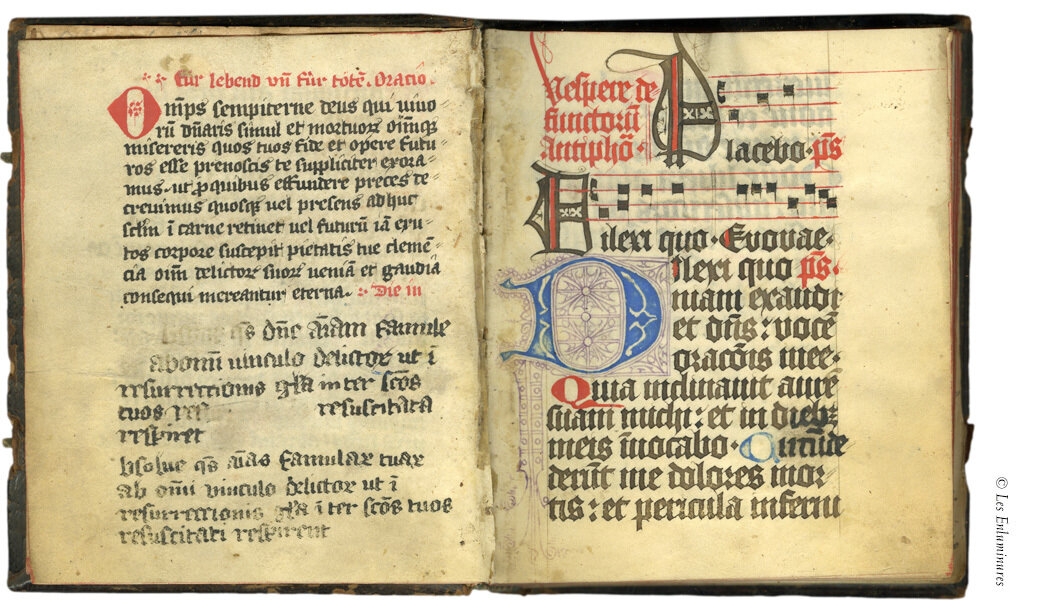 fur lebend vñ für totē. Oracio.
Omps sempiterne deus qui uiuo
rū dñaris simul et mortuoꝝ oīmqꝫ
misereris quos tuos fide et opere futu
ros esse prenoscis te suppliciter exora
mus. ut ꝓ quibus effundere preces de
creuimus quosqꝫ uel presens adhuc
sclm ī carne retinet uel futurū iā exu
tos corpore suscepit pietatis tue clemē
cia oīm delictoꝝ suoꝝ ueniā et gaudia
consequi mereantur eterna. Die in
qs dñe aīam famule
ab omī uinculo delictoꝝ ut ī
resurrectionis gla inter scōs
tuos res resuscitata
respiret
bsolue qs aīas famulaꝝ tuaꝝ
ab omī uinculo delictoꝝ ut ī
resurrectionis gla īter scōs tuos
resuscitati respirent
Vespere de
functorū
Antiphō
Placebo. p̄s
Dilexi quo. Euouae.
Dilexi quo p̄s.
niam exaudi
et dñs: uocē
oracōis mee.
Quia inclinauit aurē
suam michi: et in diebꝫ
meis īuocabo. Circūde
derūt me dolores mor
tis: et pericula inferni
© Les Enluminures